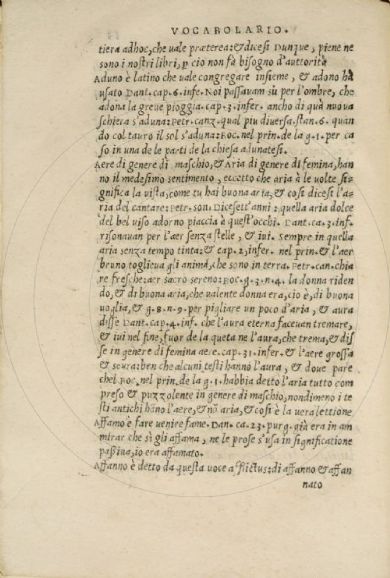 VOCABOLARIO.
tiera adhoc, che uale præterea: & dicesi Dunque, piene ne
sono i nostri libri, p cio non fa bisogno d'auttorità
Aduno è latino che uale congregare insieme, & adono ha
usato Dant. cap. 6. infe. Noi passauam sù per l'ombre, che
adona la greue pioggia. cap. 3. infer. ancho di quà nuoua
schiera s'aduna: Petr. canz. qual piu diuersa. stan. 6. quan
do col tauro il sol s'aduna: Boc. nel prin. de la g. 1. per ca
so in una de le parti de la chiesa adunatesi.
Aere di genere di maschio, & Aria di genere di femina, han
no il medesimo sentimento, eccetto che aria à le uolte si-
gnifica la uista, come tu hai buona aria, & cosi dicesi l'a-
ria del cantare: Petr. son. Dicesett'anni: quella aria dolce
del bel uiso adorno piaccia à quest'occhi. Dant. ca. 3. inf.
risonauan per l'aer senza stelle, & iui. Sempre in quella
aria senza tempo tinta: & cap. 2. infer. nel prin. & l'aer
bruno toglieua gli animai, che sono in terra. Petr. can. chia
re fresche: aer sacro sereno: Boc. g. 3. n. 4. la donna riden
do, & di buona aria, che ualente donna era, cio è, di buona
uoglia, & g. 8. n. 9. per pigliare un poco d'aria, & aura
disse Dant. cap. 4. inf. che l'aura eterna faceuan tremare,
& iui nel fine, fuor de la queta ne l'aura, che trema, & dis
se in genere di femina aere. cap. 31. infer. & l'aere grossa
& scura: ben che alcuni testi hanno l'aura, & doue pare
chel Boc. nel prin. de la g. 1. habbia detto l'aria tutto com
preso & puzzolente in genere di maschio, nondimeno i te
sti antichi hãno l'aere, & nõ aria, & cosi è la uera lettione.
Affamo è fare uenire fame. Dan. ca. 23. purg. già era in am
mirar che sì gli affama, ne le prose s'usa in significatione
passiua, io era affamato.
Affanno è detto da questa uoce afflictus: di affanno & affan
nato